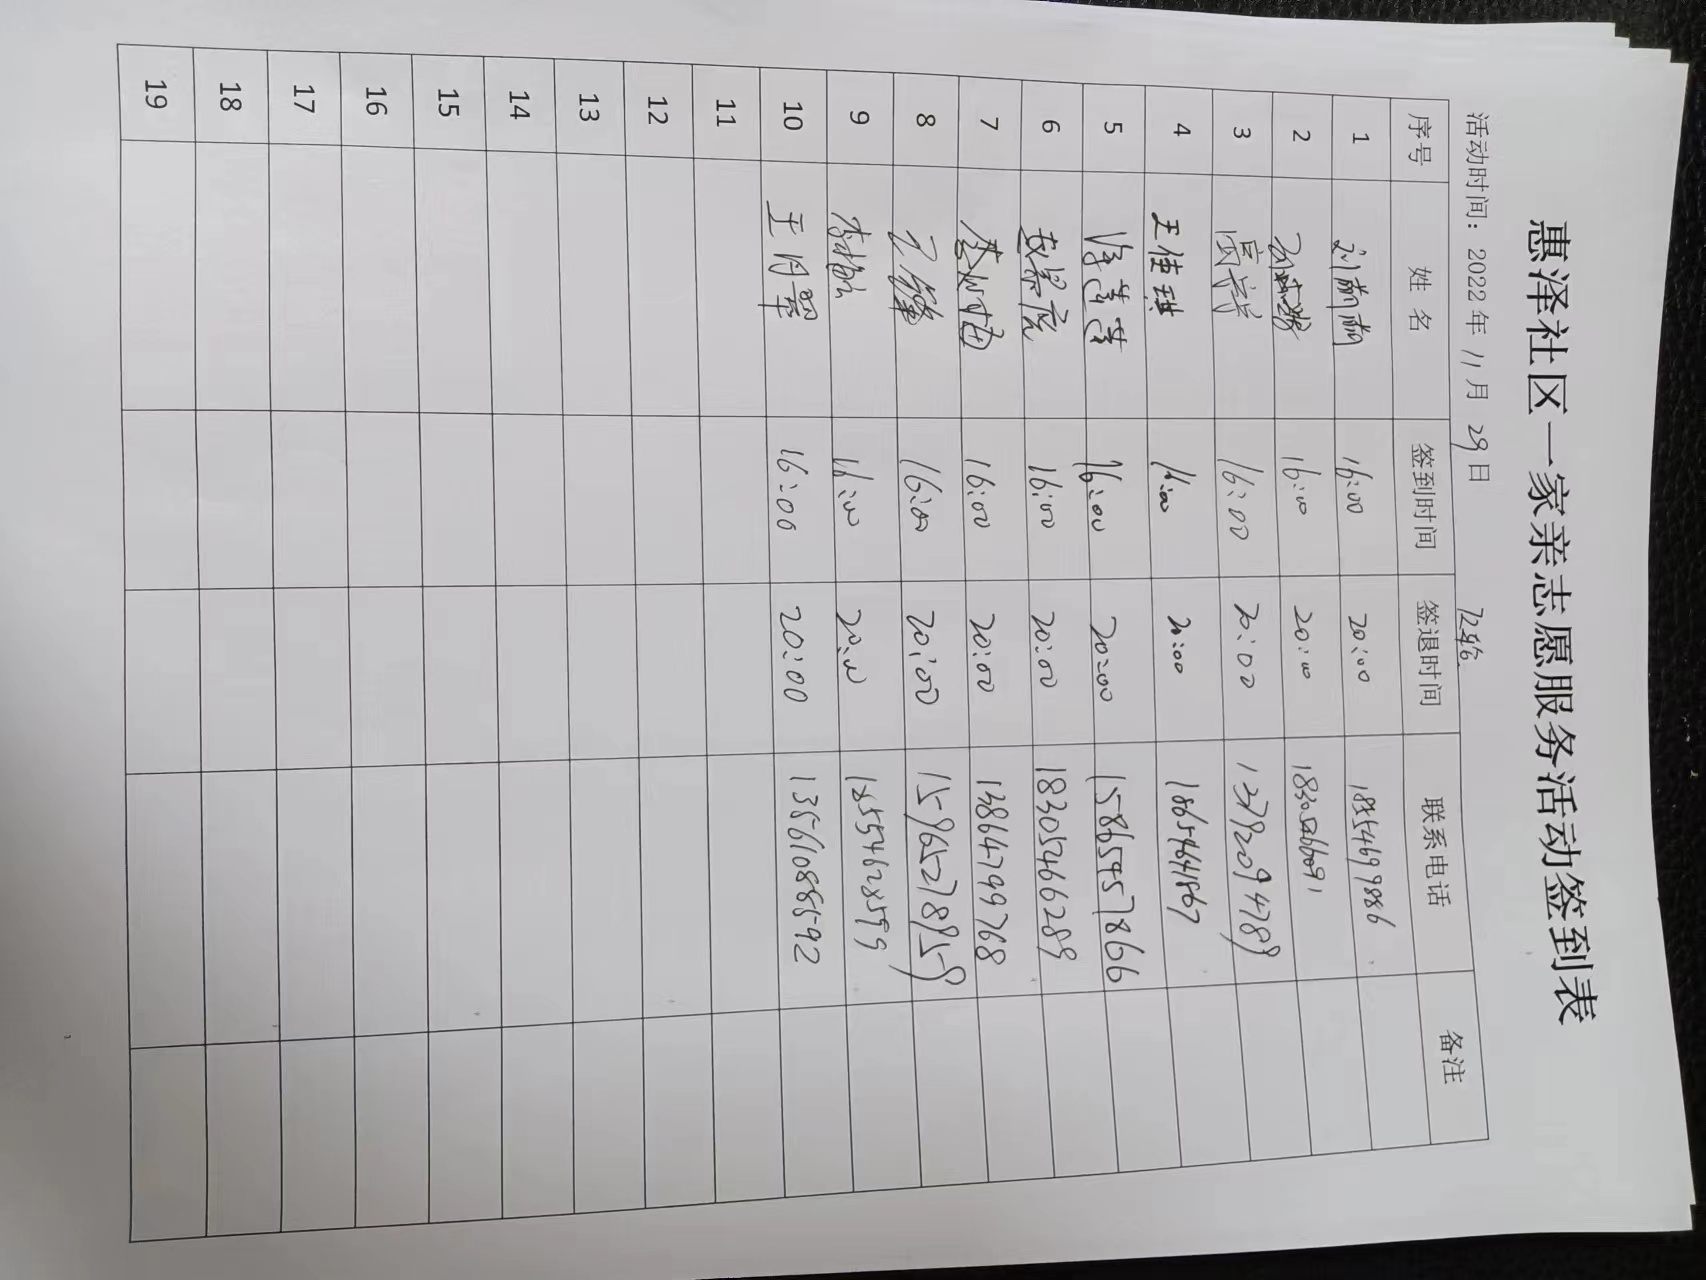 惠泽社区一家亲志愿服务活动签到表
活动时间：2022年 11月 29日
序号 姓 名 签到时间 签退时间 联系电话 备注
1 刘萌萌 16:00 20:00 18554699886
2 16:00 20:00
3 16:00 20:00
4 王佳琪 16:00 20:00 18654641867
5 16:00 20:00 15865457866
6 赵景亮 16:00 20:00 18305466289
7 16:00 20:00 13864799768
8 16:00 20:00
9 16:00 20:00 18554628559
10 王月翠 16:00 20:00 13561088592
11
12
13
14
15
16
17
18
19